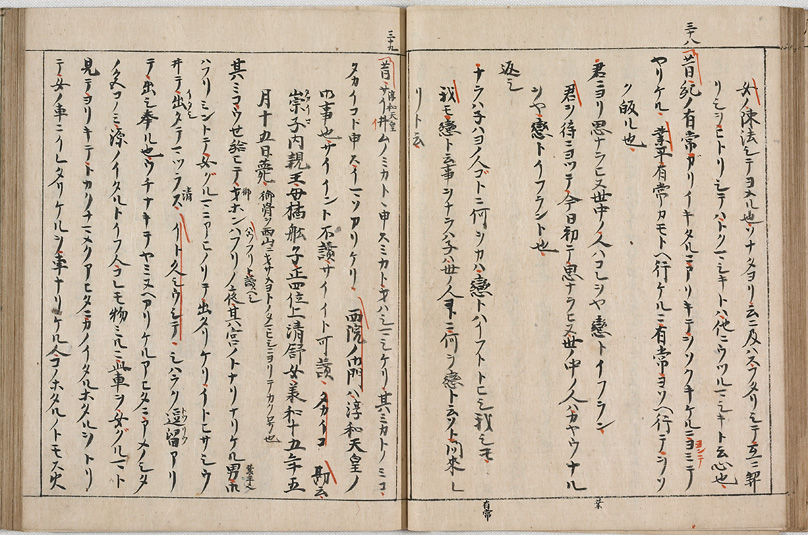 女ノ陳法シテヨメル也ツナタヨリ云ニ及ハスフタリシテ互ニ契
リシヲヒトリシテハトクマシキトハ他ニウツルマシキト云心也
三十八
昔紀ノ有常カリイキタルニアリキテヲソクキケルニヨミテ
ヤリケル 業平有常カモトヘ行ケルニ有常ヨソヘ行テヲソ
ク皈ル也
君ニヨリ思ナラヒヌ世中ノ人ハコレヲヤ戀トイフラン
君ヲ待ニヨツテ今日初テ思ナラヒヌ世ノ中ノ人ハカヤウナル
ヲヤ戀トイフラント也
返シ
ナラハネハヨノ人コトニ何ヲカハ戀トハイフトトヒシ我シモ
我モ戀ト云事ヲナラハネハ世ノ人コトニ何ヲ戀ト云ソト問来レ
リト云
有常
三十九
昔サイ井ムノミカトト申スミカトヲハシマシケリ其ミカトノミコ
淳和天皇
タカイコト申スイマソカリケリ 西院ノ御門ハ淳和天皇ノ
御事也サイイント不讀サイイト可讀 タカイコ 勘云
崇子内親王母橘舩子正四位上清野女義和十五年五
月十五日薨御骨ヲ西山ニ
其ミコウセ給ヒテ御ホンハフリノ夜其宮ノトナリナリケル男
ハフリミントテ女グルマニアヒノリテ出タリケリイトヒサシウ
井テ出タテマツラス イト久シウシテ シハラク逗留アリ
テ出シ奉ル也ウチナキテヤミヌヘカリケルアヒタニアメノシタ
ノ色コノミ源ノイタルトイフ人コレモ物ミルニ此車ヲ女グルマト
見テヨリキテトカクナマメクアヒタニカノイタルホタルヲトリ
テ女ノ車ニイレタリケルヲ車ナリケル人コノホタルノトモス火